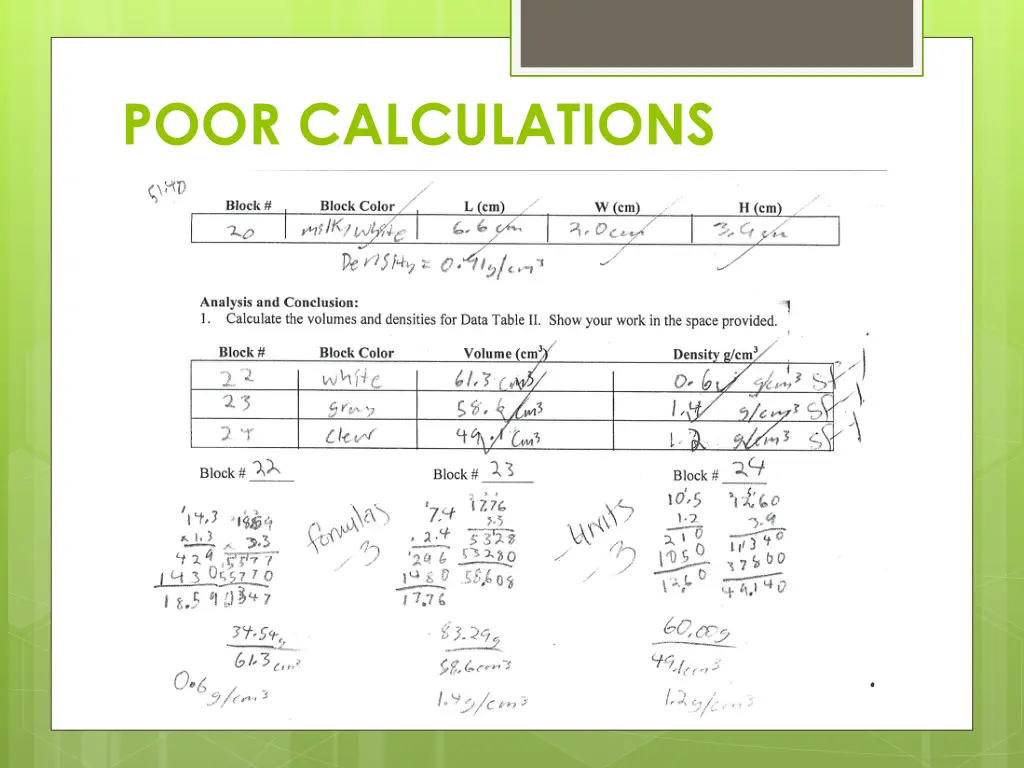 POOR CALCULATIONS
Block # Block Color L (cm) W (cm) H (cm)
20 milk/white 6.6 cm 2.0cm
Density = 0.91g/cm3
Analysis and Conclusion:
1. Calculate the volumes and densities for Data Table II. Show your work in the space provided.
Block # Block Color Volume (cm3) Density g/cm3
22 white 61.3 cm3 0.6 g/cm3 SF -1
23 gray 58.6 cm3 1.4 g/cm3 SF -1
24 clear 49.1 cm3 1.2 g/cm3 SF -1
Block # 22 Block # 23 Block # 24
14.3 7.4 17.76 10.5 12.60
x 1.3 3.3 2.4 3.3 1.2 3.9
429 5577 296 5328 210 11340
1430 55770 1480 53280 1050 37800
18.59 17.76 58.608 12.60 49.140
formulas -3 units -3
34.54g 83.29g 60.00g
61.3 cm3 58.6cm3 49.1cm3
0.6 g/cm3 1.4g/cm3 1.2g/cm3